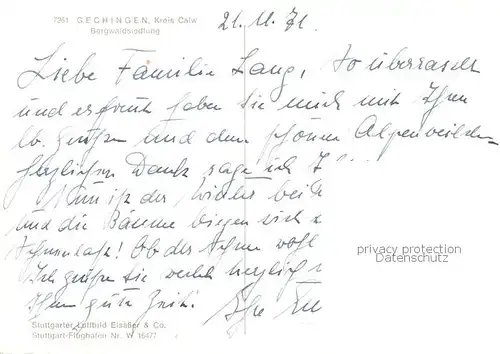 7261 GECHINGEN, Kreis Calw
Bergwaldsiedlung
21.11.71.
Liebe Familie Lang, so überrascht
und erfreut haben Sie mich mit Ihren
lb. Grüßen und dem schönen Alpenveilchen
herzlichen Dank sage ich I
Nun ist der Winter bei
und die Bäume biegen sich
Schneelast! Ob der Schnee wohl
Ich grüße Sie recht herzlich
Ihnen gute Zeit! Ihre
privacy protection
Datenschutz
Stuttgarter Luftbild Elsäßer & Co.
Stuttgart-Flughafen Nr. W 16477